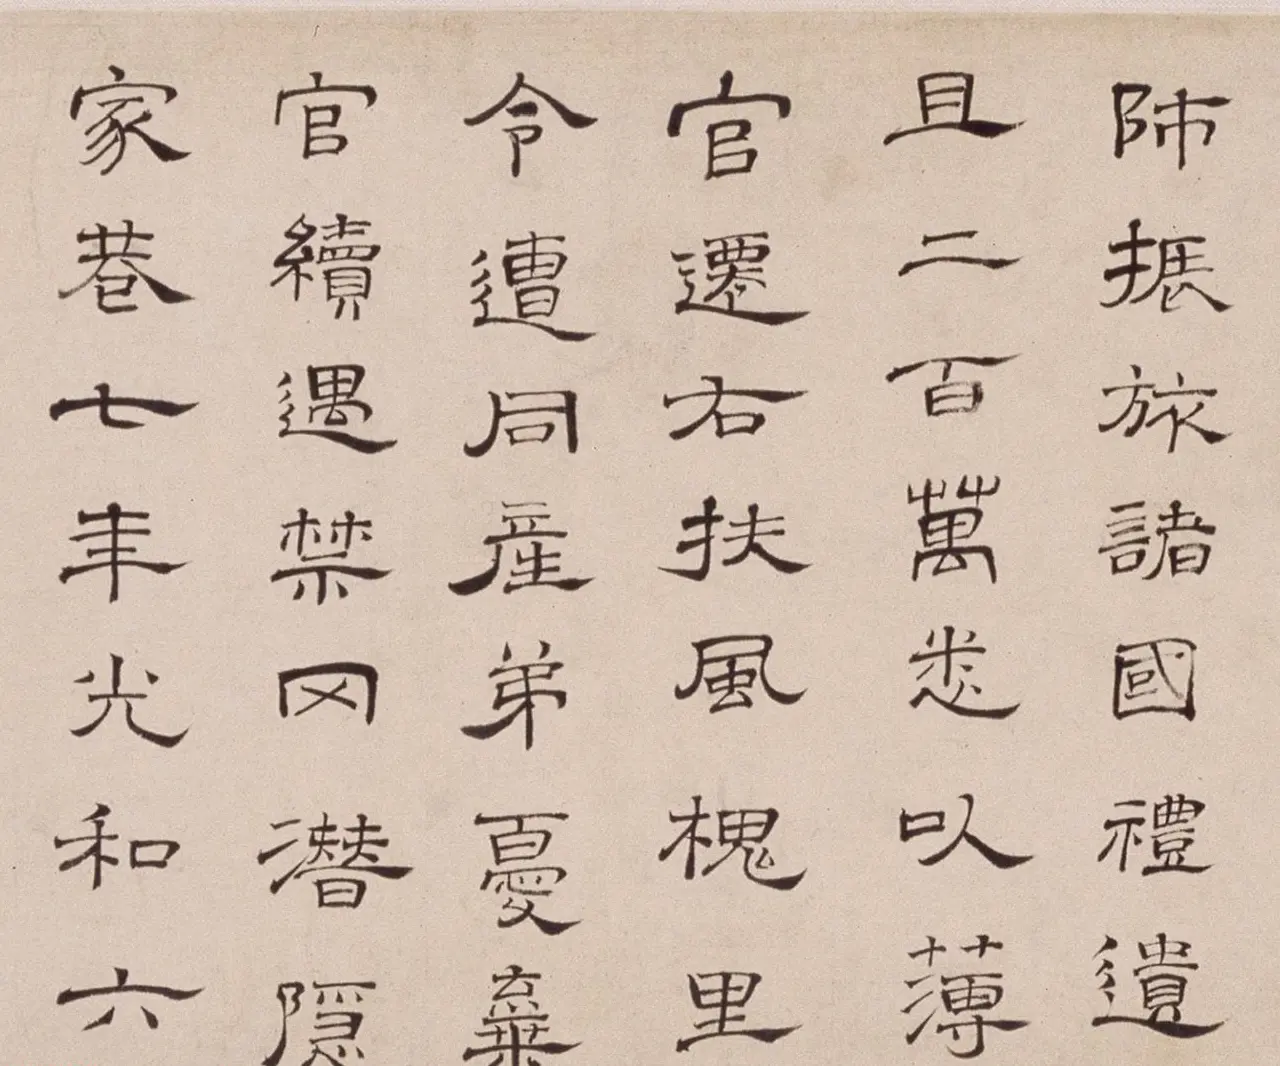 師振旅諸國禮遺
且二百萬悉以薄
官遷右扶風槐里
令遭同産弟憂棄
官續遇禁冈潛隱
家巷七年光和六